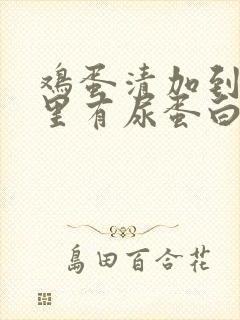 鸡蛋清加到
里有尿蛋白
島田百合花